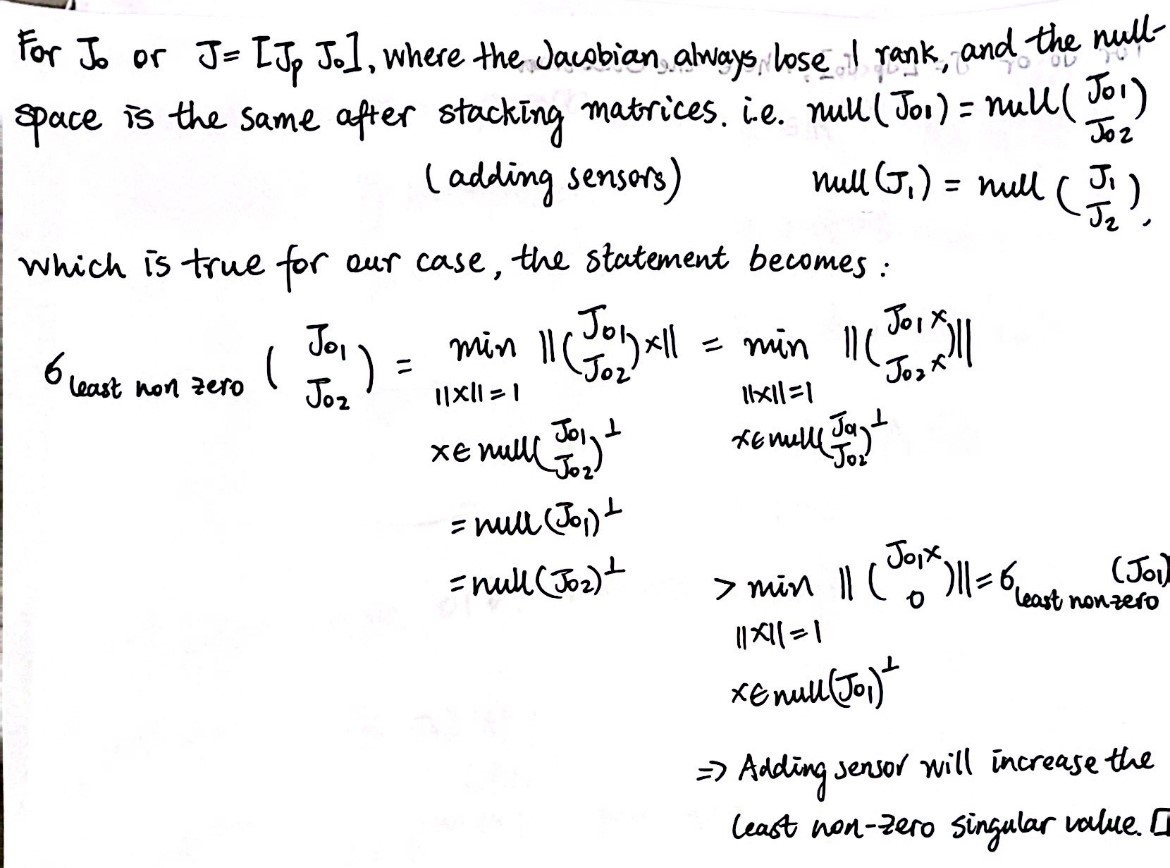 For J₀ or J = [Jₚ J₀], where the Jacobian always lose 1 rank, and the null-
space is the same after stacking matrices. i.e. null(J₀₁) = null(J₀₁ J₀₂)
(adding sensors) null(J₁) = null(J₁ J₂),
which is true for our case, the statement becomes:
σ least non zero (J₀₁ J₀₂) = min ‖(J₀₁ J₀₂)x‖ = min ‖(J₀₁x J₀₂x)‖
‖x‖=1 ‖x‖=1
x∈null(J₀₁ J₀₂)^⊥ x∈null(J₀₁ J₀₂)^⊥
= null(J₀₁)^⊥
= null(J₀₂)^⊥ > min ‖(J₀₁x 0)‖ = σ least nonzero (J₀₁)
‖x‖=1
x∈null(J₀₁)^⊥
⇒ Adding sensor will increase the
least non-zero singular value. □